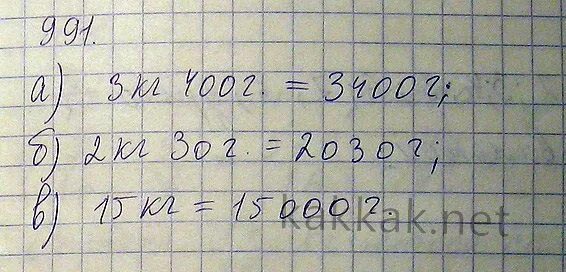 991.
а) 3кг 400г. = 3400г;
б) 2кг 30г. = 2030г;
в) 15кг = 15000г.
kakkak.net